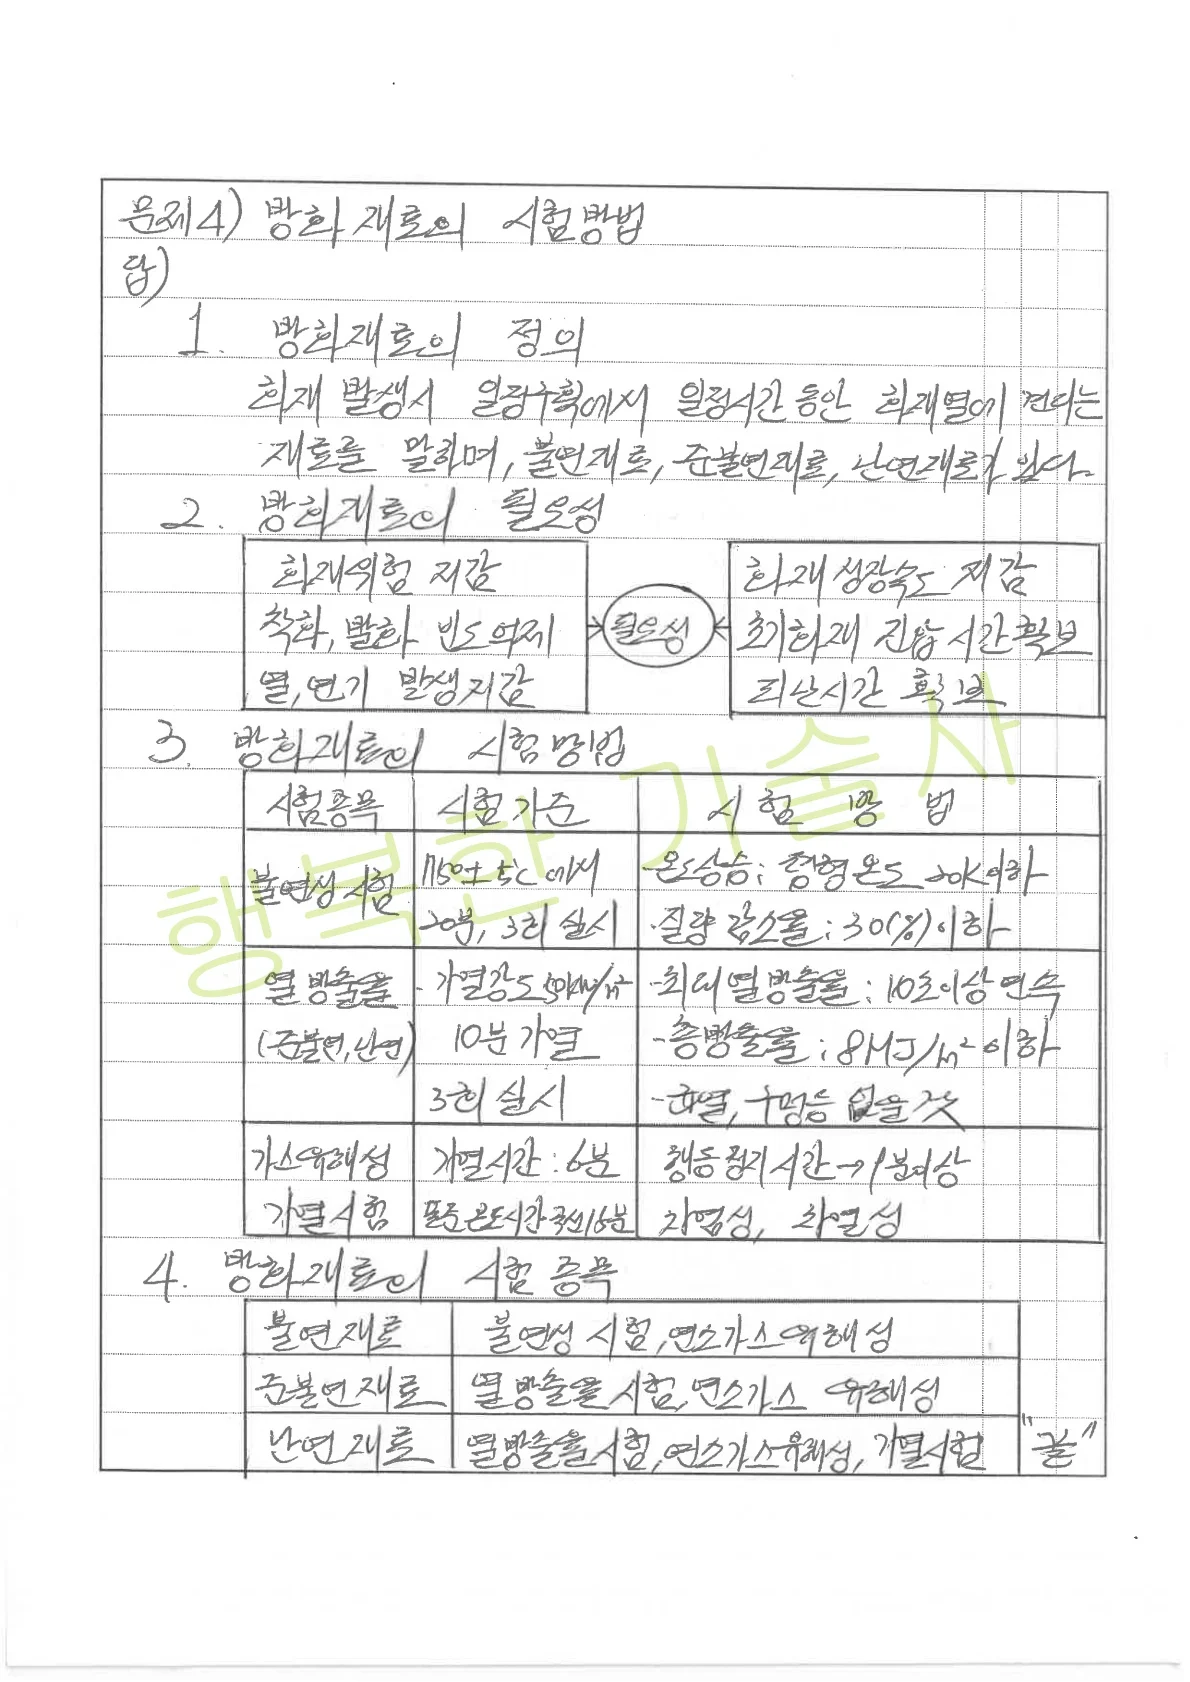 문제4) 방화재료의 시험방법
답)
1. 방화재료의 정의
화재 발생시 일정구획에서 일정시간 동안 화재열에 견디는
재료를 말하며, 불연재료, 준불연재료, 난연재료가 있다.
2. 방화재료의 필요성
화재위험 저감
착화, 발화 빈도 억제
열, 연기 발생저감
필요성
화재 성장속도 저감
초기화재 진압시간 확보
피난시간 확보
3. 방화재료의 시험방법
시험종목 시험기준 시험방법
불연성 시험 750±5℃에서 - 온도상승: 평형온도 20K이하
20분, 3회 실시 - 질량 감소율: 30(%)이하
열방출율 - 가열강도 50kW/m² - 최대열방출율: 10초이상 연속
(준불연, 난연) 10분 가열 - 총방출율: 8MJ/m² 이하
3회 실시 - 균열, 구멍등 없을 것
가스유해성 가열시간: 6분 행동정지시간→9분이상
가열시험 표준온도시간곡선15분 차염성, 차열성
4. 방화재료의 시험종목
불연재료 불연성 시험, 연소가스 유해성
준불연재료 열방출율 시험, 연소가스 유해성
난연재료 열방출율시험, 연소가스유해성, 가열시험 "끝"
행복한 기술사